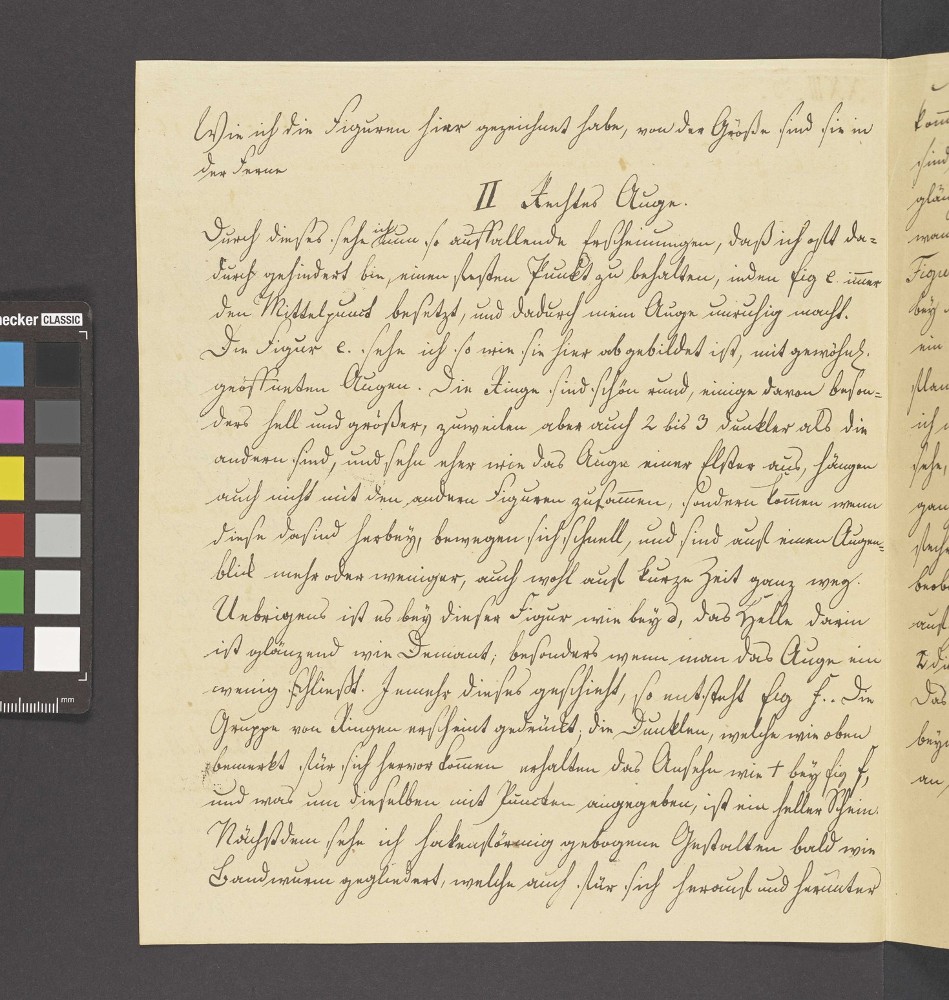 Wie ich die Figuren hier gezeichnet habe, von der Größe sind sie in
der Ferne
II Rechtes Auge.
Durch dieses sehe ich nun so auffallende Erscheinungen, daß ich oft da=
durch gehindert bin, einen festen Punkt zu behalten, inden fig e. im̅er
den Mittelpunct besetzt, und dadurch mein Auge unruhig macht.
Die Figur e. sehe ich so wie sie hier abgebildet ist, mit gewöhnl.
geöffneten Augen. Die Ringe sind schön rund, einige davon beson=
ders hell und größer, zuweilen aber auch 2 bis 3 dunkler als die
andern sind, und sehn eher wie das Auge einer Elster aus, hängen
auch nicht mit den andern Figuren zusam̅en, sondern kom̅en wenn
diese dasind herbey, bewegen sich schnell, und sind auf einen Augen=
blick mehr oder weniger, auch wohl auf kurze Zeit ganz weg.
Uebrigens ist es bey dieser Figur wie bey, das Helle darin
ist glänzend wie Demant; besonders wenn man das Auge ein
wenig schließt. Jemehr dieses geschieht, so entsteht fig f.. Die
Gruppe von Ringen erscheint gedrückt; die Dunklen, welche wie oben
bemerkt für sich hervor kom̅en erhalten das Ansehn wie + bey fig f,
und was um dieselben mit Puncten angegeben, ist ein heller Schein.
Nächstdem sehe ich hakenförmig gebogene Gestalten bald wie
Bandwurm gegliedert, welche auch für sich herauf und herunter